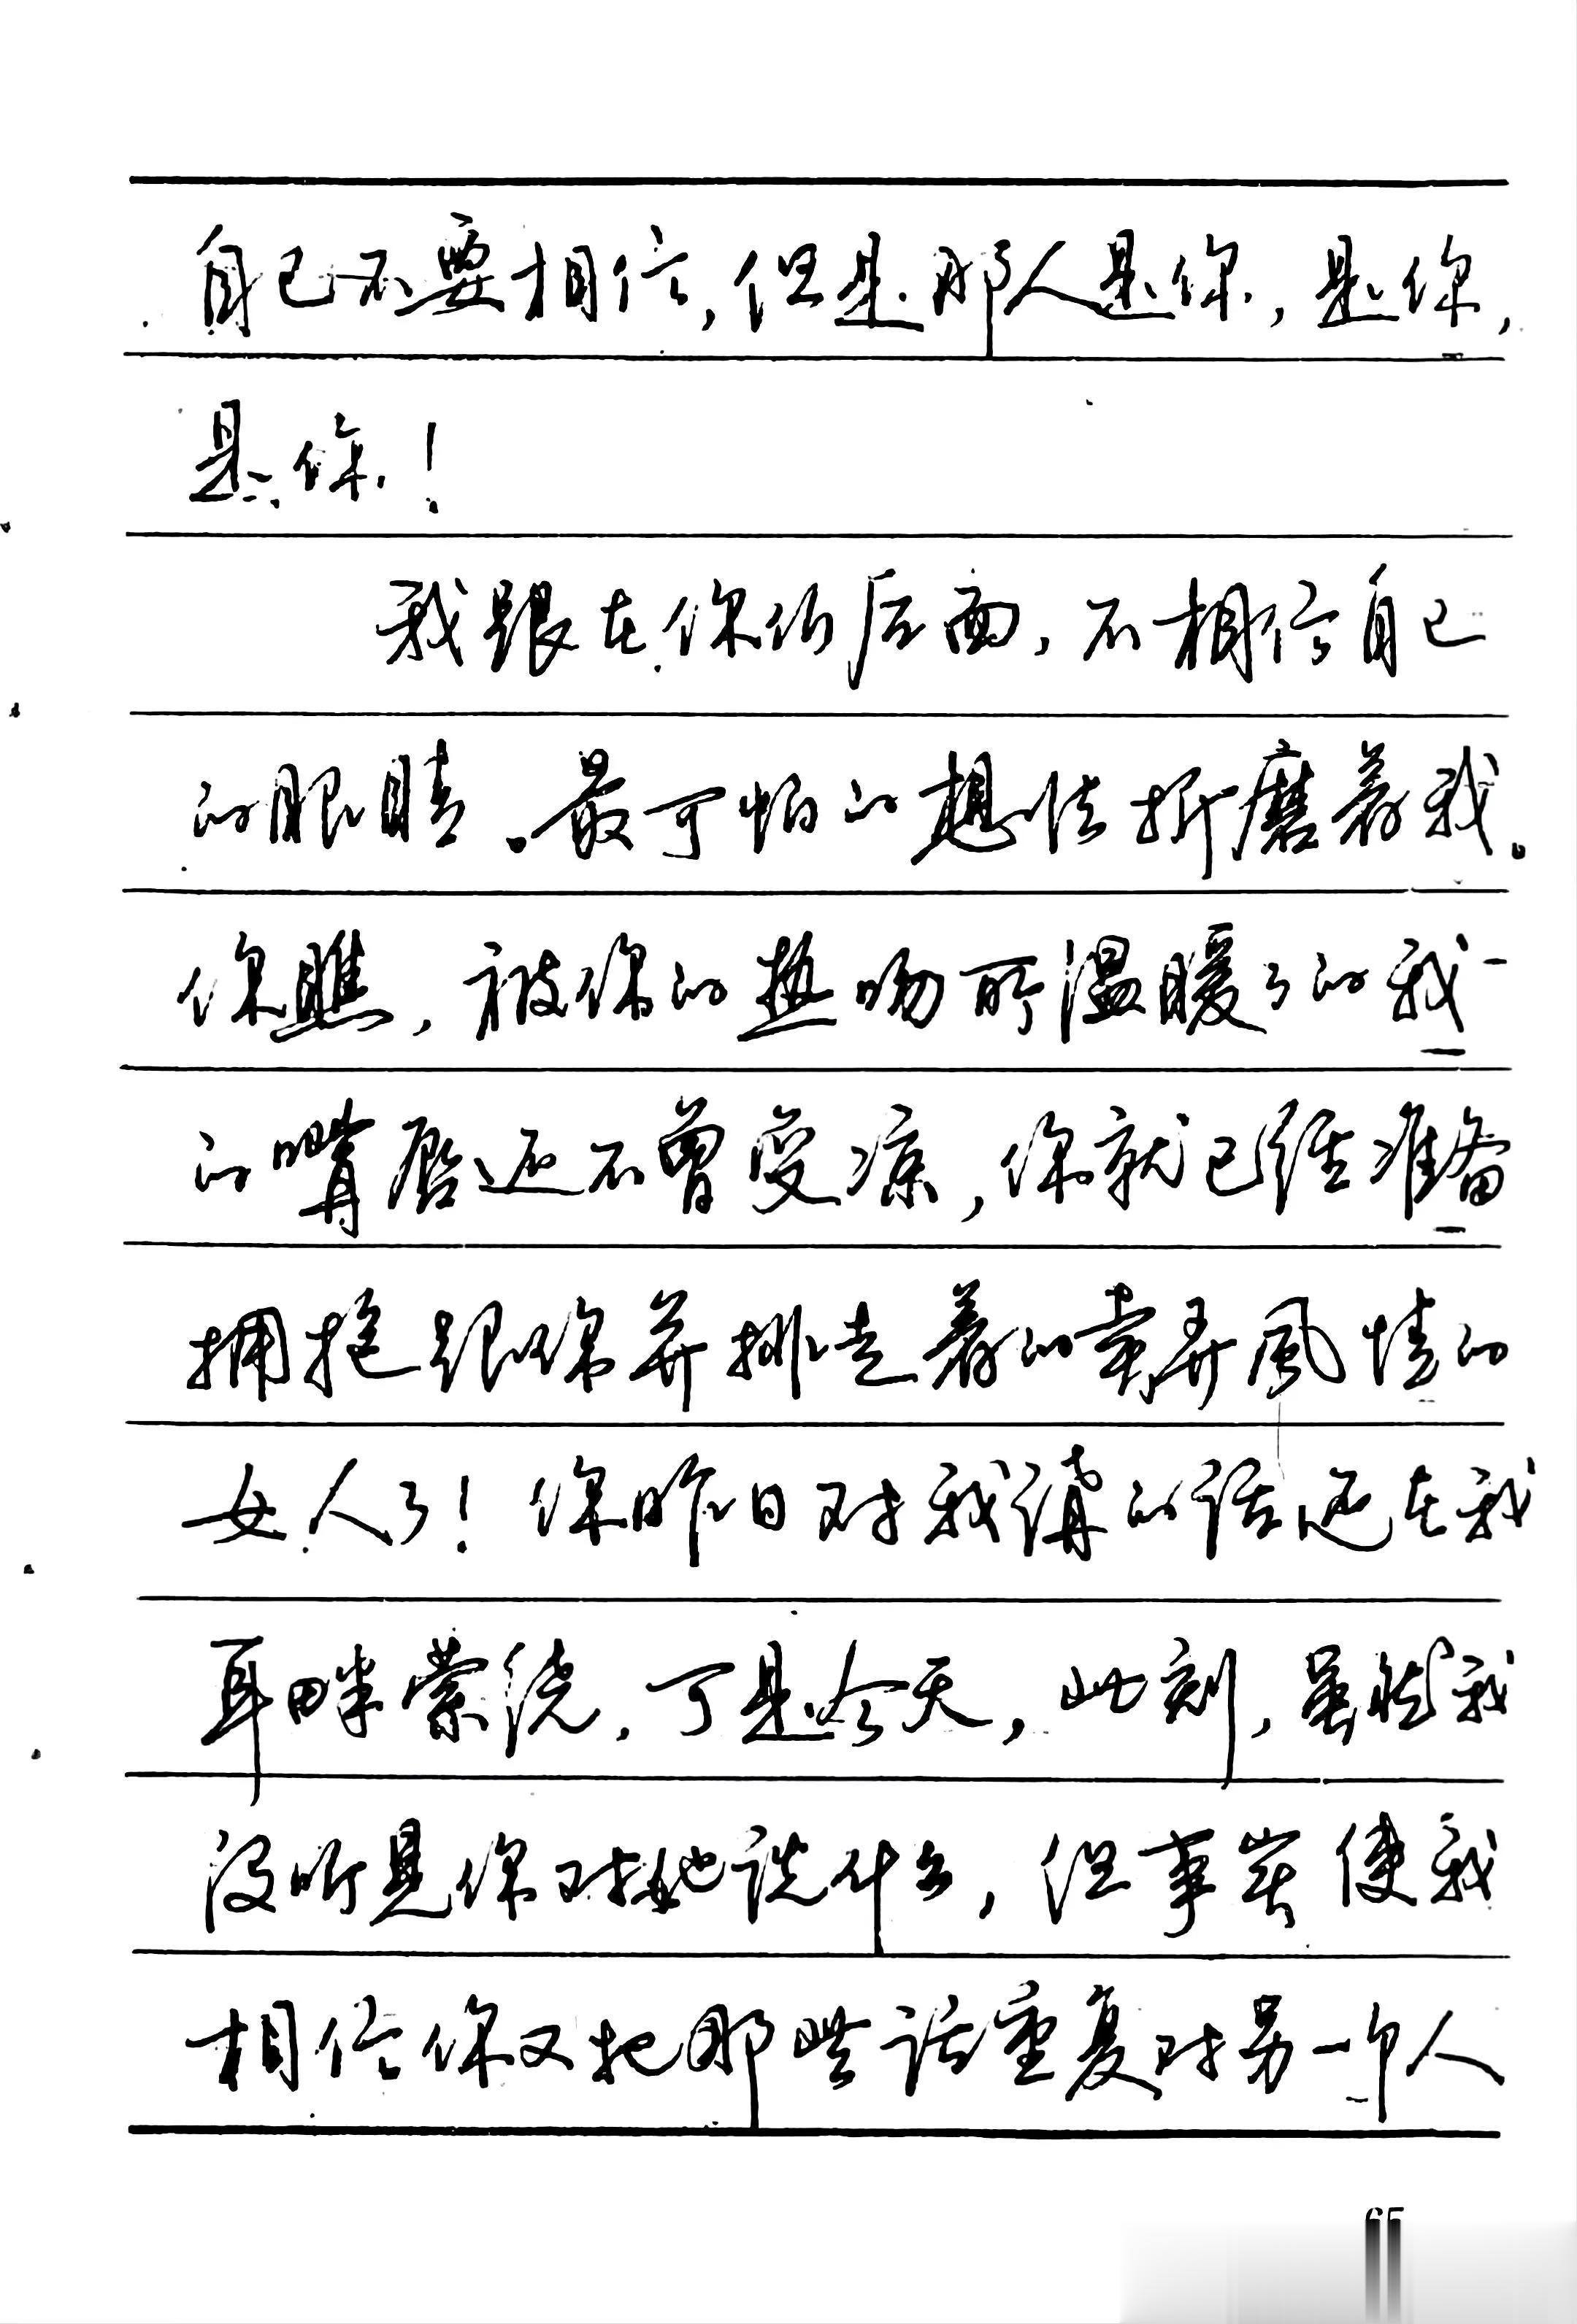 自己不要相信，但是那人是你，是你，
是你！
我跟在你们后面，不相信自己
的眼睛。最可怕的想法折磨着我。
你瞧，被你的热吻所温暖了的我
的嘴唇还不曾变凉，你就已经准备
拥抱跟你并排走着的卖弄風情的
女人了！你昨日对我講的话还在我
耳畔萦绕，可是今天，此刻，虽然我
没听見你对她说什么，但事实使我
相信你又把那些话重复对另一个人
65